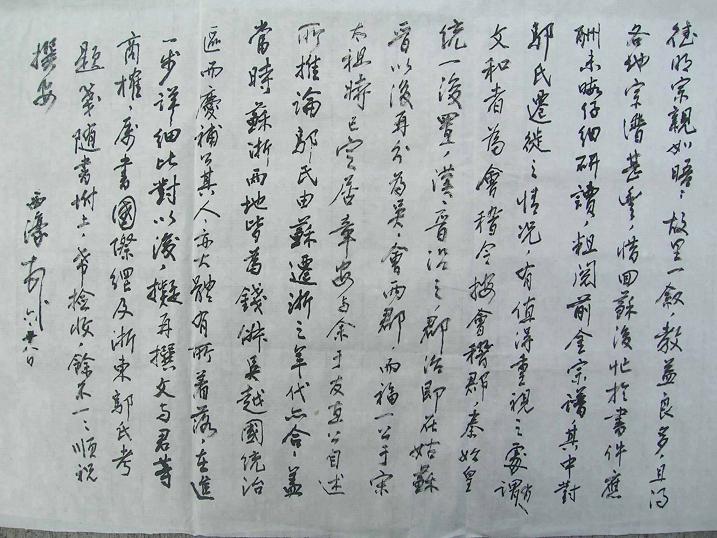 德明宗親如晤，故里一敘，教益良多，且得
各地宗譜甚豐，惜回蘇後忙於書件應
酬未暇仔細研讀，粗閱前金宗譜，其中對
鄔氏遷徙之情況，有值得重視之處，謂
文和者為會稽令按會稽郡秦始皇
統一後置，漢、晉沿之，郡治即在姑蘇
晉以後再分為吳、會兩郡，而福一公于宋
太祖時已定居章安與余于友直公自述
所推論鄔氏由蘇遷浙之年代亦合，蓋
當時蘇浙兩地皆為錢鏐吳越國統治
區而慶補公其人亦大體有所着落，在進
一步詳細比對以後，擬再撰文與君等
商榷，属書國際網及浙東鄔氏考
題箋隨書坿上，希撿收，餘不一一順祝
撰安
西濠 六月廿八日